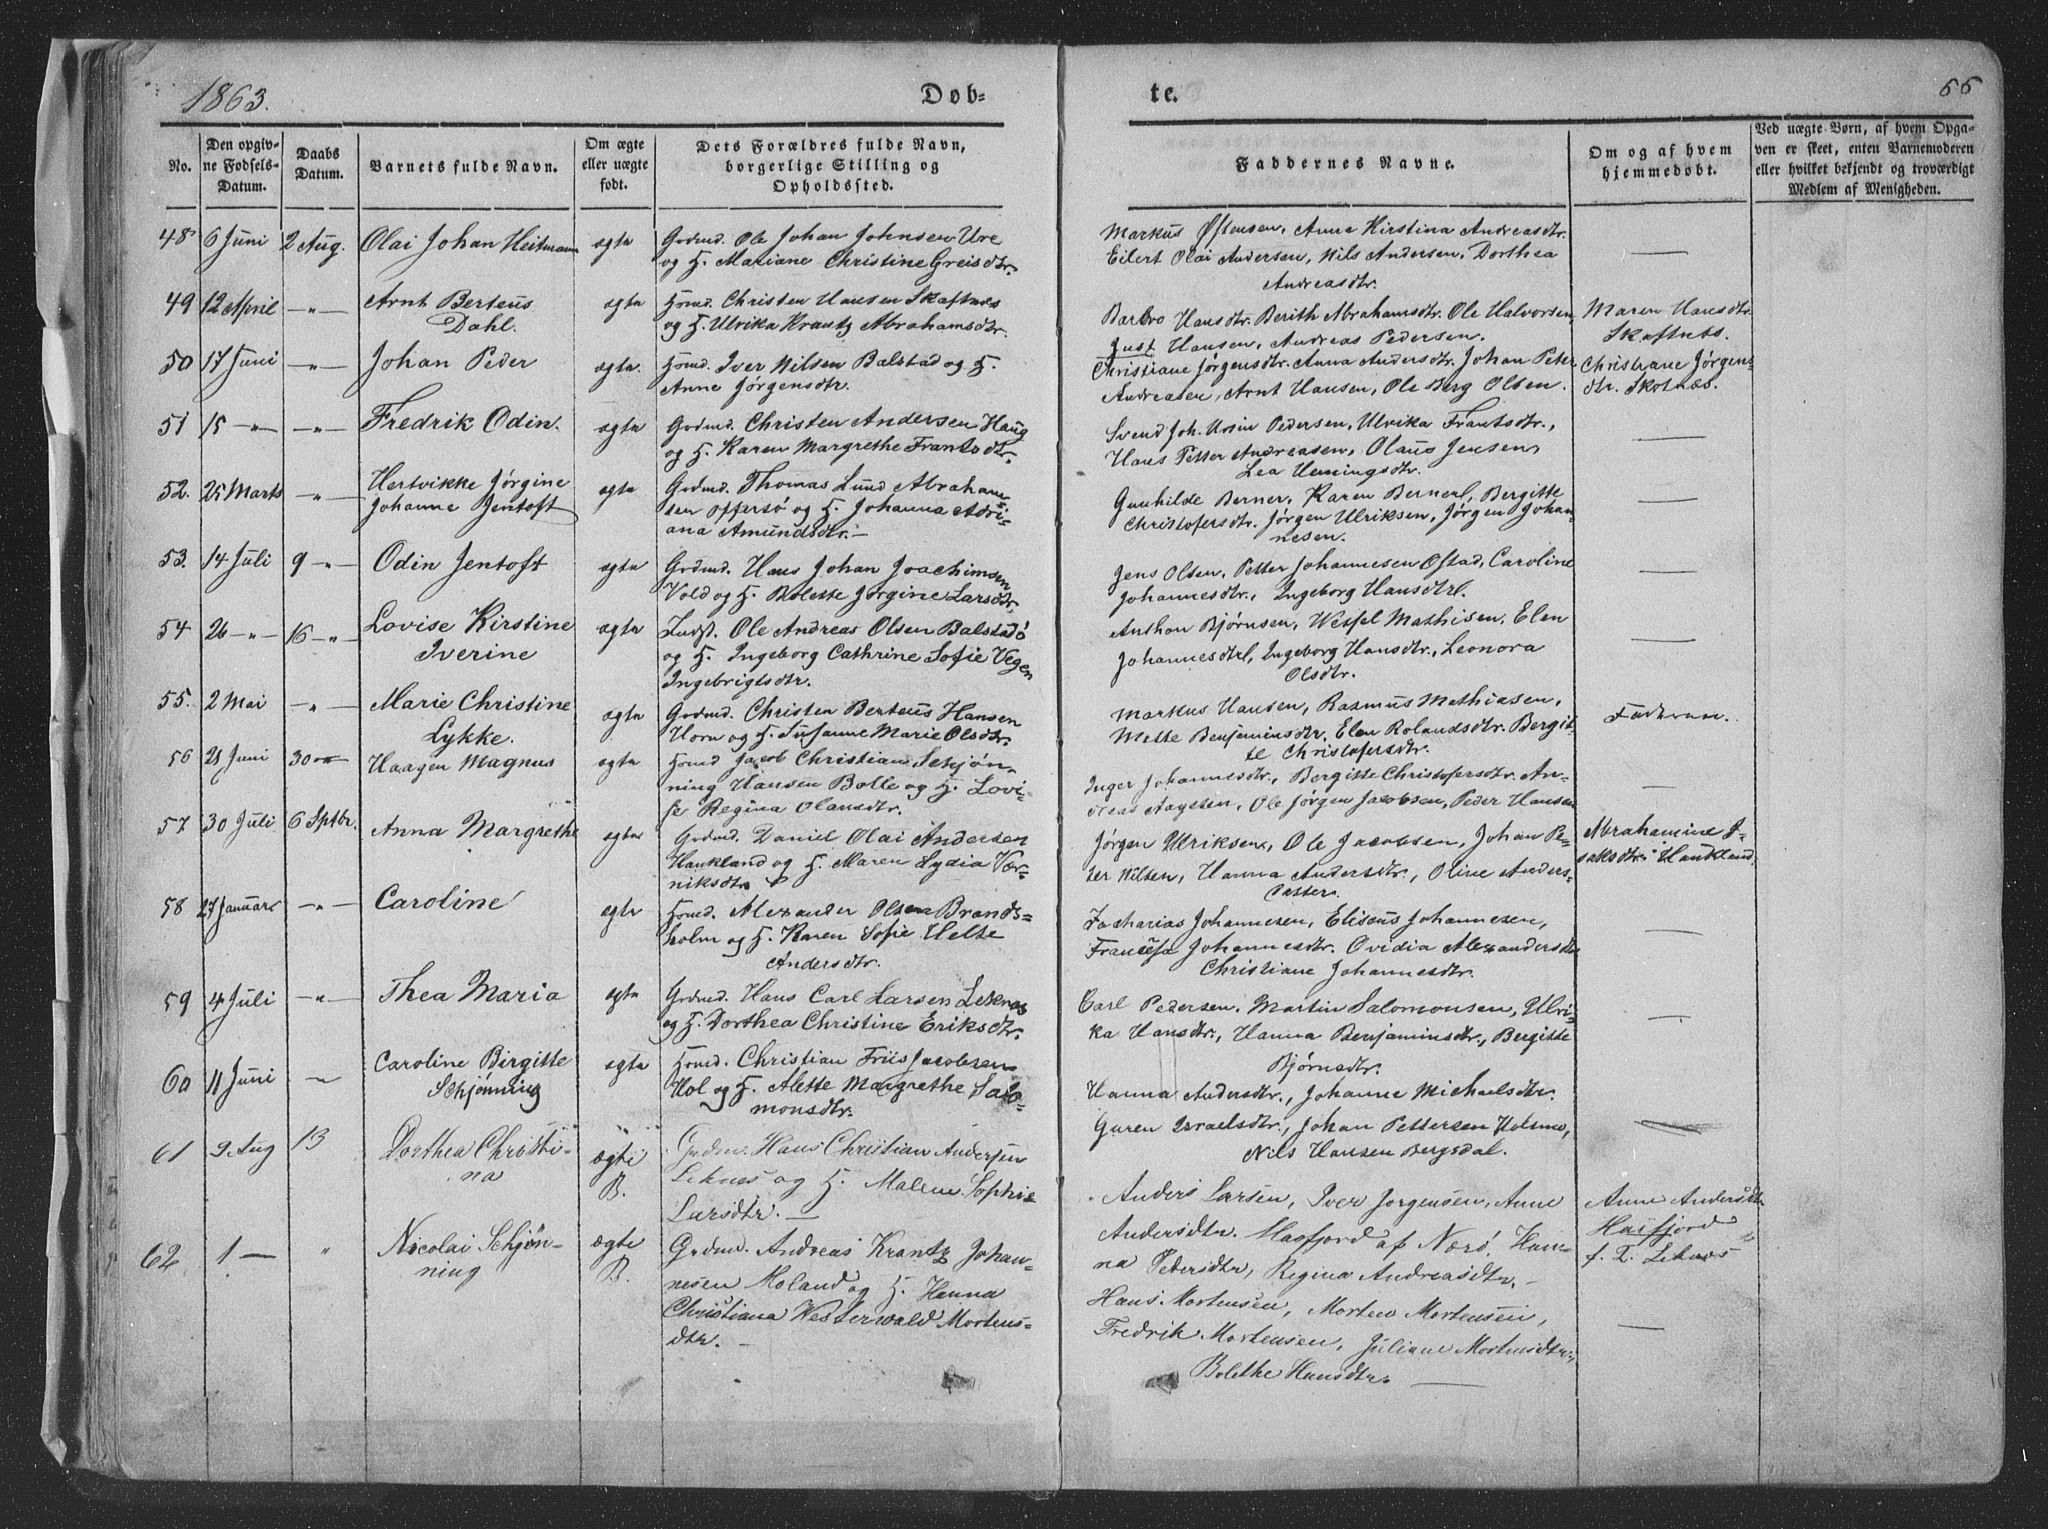 1863.
Døb-
te.
66
No.
Den opgiv-
ne Fødsels-
Datum.
Daabs
Datum.
Barnets fulde Navn.
Om ægte
eller uægte
født.
Dets Forældres fulde Navn,
borgerlige Stilling og
Opholdssted.
Faddernes Navne.
Om og af hvem
hjemmedøbt.
Ved uægte Børn, af hvem Opga-
ven er skeet, enten Barnemoderen
eller hvilket bekjendt og troværdigt
Medlem af Menigheden.
48 6 Juni 2 Aug. Olai Johan Heitmann ægte
Grdmd. Ole Johan Johnsen Ure
og H. Mariane Christine Greisdtr.
Markus Østensen, Anne Kirstina Andreasdtr.
Eilert Olai Andersen, Nils Andersen, Dorthea
Andreasdtr.
49 12 April —"— Arnt Berteus
Dahl.
ægte
Hsmd. Christen Hansen Skaftnæs
og H. Ulrika Krantz Abrahamsdtr.
Barbro Hansdtr. Berith Abrahamsdtr. Ole Halvorsen,
Just Hansen, Andreas Pedersen.
Maren Hansdtr.
Skaftnæs.
50 17 Juni —"— Johan Peder ægte
Hsmd. Iver Nilsen Balstad og H.
Anne Jørgensdtr.
Christiane Jørgensdtr. Anna Andersdtr. Johan Peter
Andreasen, Arnt Hansen, Ole Berg Olsen.
Christiane Jørgens-
dtr. Skotnæs.
51 15 —"— —"— Fredrik Odin. ægte
Grdmd. Christen Andersen Haug
og H. Karen Margrethe Frantsdtr.
Svend Joh. Ursin Pedersen, Ulrika Frantsdtr.,
Hans Petter Andreasen, Olaus Jensen,
Lea Hemingsdtr.
52. 25 Marts —"— Hertvikke Jørgine
Johanne Jentoft
ægte
Grdmd. Thomas Lund Abraham-
sen Offersø og H. Johanna Adri-
ana Amundsdtr.—
Gunhilde Berner, Karen Berner, Bergitte
Christofersdtr. Jørgen Ulriksen, Jørgen Johan-
nesen.
53. 14 Juli 9 —"— Odin Jentoft ægte
Grdmd. Hans Johan Joachimsen
Vold og H. Bolette Jørgine Larsdtr.
Jens Olsen, Petter Johannesen Østad, Caroline
Johannesdtr., Ingeborg Hansdtr.
54 26 —"— 16 —"— Lovise Kirstine
Iverine
ægte
Indst. Ole Andreas Olsen Balstadö
og H. Ingeborg Cathrine Sofie Vegen
Ingebrigtsdtr.
Anthon Bjørnsen, Wessel Mathisen, Elen
Johannesdtr., Ingeborg Hansdtr., Leonora
Olsdtr.
55. 2 Mai —"— Marie Christine
Lykke.
ægte
Grdmd. Christen Berteus Hansen
Horn og H. Susanne Marie Olsdtr.
Markus Hansen, Rasmus Mathiasen,
Mette Benjaminsdtr, Elen Rolandsdtr. Bergit-
te Christofersdtr.
Faderen.
56 21 Juni 30 —"— Haagen Magnus ægte
Hsmd Jacob Christian Schjøn-
ning Hansen Bolle og H. Lovi-
se Regina Olausdtr.
Inger Johannesdtr., Bergitte Christofersdtr. An-
dreas Aagesen, Ole Jørgen Jacobsen, Peder Hansen
57 30 Juli 6 Sptbr. Anna Margrethe ægte
Grdmd. Daniel Olai Andersen
Haukland og H. Maren Lydia Vær-
niksdtr.
Jørgen Ulriksen, Ole Jacobsen, Johan Pe-
ter Nilsen, Hanna Andersdtr., Oline Anders-
datter.
Abrahamine I-
saksdtr. Haukland.
58 27 Januar —"— Caroline ægte
Hsmd. Alexander Olsen Brands-
holm og H. Karen Sofie Helte
Andersdtr.
Zacharias Johannesen, Eliseus Johannesen,
Francisa Johannesdtr. Ovidia Alexandersdtr
Christiane Johannesdtr.
59 4 Juli —"— Thea Maria ægte
Grdmd. Hans Carl Larsen Leknæs
og H. Dorthea Christine Eriksdtr.
Carl Pedersen, Martin Salomonsen, Ulri-
ka Hansdtr., Hanna Benjaminsdtr., Bergitte
Bjørnsdtr.
60 11 Juni —"— Caroline Birgitte
Schjønning
ægte
Hsmd. Christian Friis Jacobsen
Hol og H. Alette Margrethe Salo-
monsdtr.
Hanna Andersdtr., Johanne Michaelsdtr.
Guren Israelsdtr., Johan Pettersen Holsmo,
Nils Hansen Bergsdal.
61 9 Aug 13 Dorthea Christi-
na
ægte
B.
Grdm. Hans Christian Andersen
Leknes og H. Malene Sophie
Larsdtr. —
Anders Larsen, Iver Jørgensen, Anne
Andersdtr. Hasfjord af Nærö, Han-
na Pedersdtr, Regina Andreasdtr. —
Anne Andersdtr
Hasfjord
f. T. Leknes
62 1 — " Nicolai Schjøn-
ning
ægte
B.
Grdmd. Andreas Krantz Johan-
nesen Moland og H. Hanna
Christiana Westerwald Mortens-
dtr. —
Hans Mortensen, Morten Mortensen,
Fredrik Mortensen, Juliane Mortensdtr.,
Bolethe Hansdtr. —